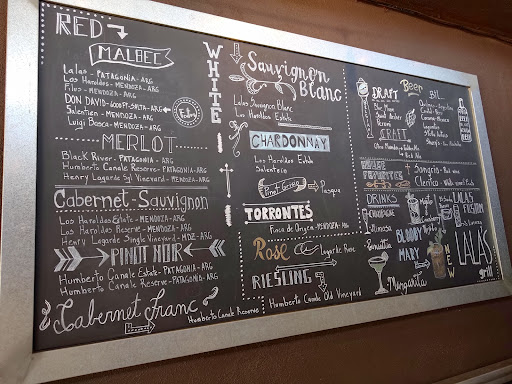 RED
MALBEC
Lalas - PATAGONIA - ARG
Los Haroldos - MENDOZA - ARG
Pilos - MENDOZA - ARG
DON DAVID - 6000 FT - SALTA - ARG
Salentien - MENDOZA - ARG
Luigi Bosca - MENDOZA - ARG
MERLOT
Black River - PATAGONIA - ARG
Humberto Canale Reserve - PATAGONIA - ARG
Henry Lagarde Sgl Vineyard - MENDOZA - ARG
Cabernet-Sauvignon
Los Haroldos Estate - MENDOZA - ARG
Los Haroldos Reserve - MENDOZA - ARG
Henry Lagarde Single Vineyard - MDZ - ARG
PINOT NOIR
Humberto Canale Estate - PATAGONIA - ARG
Humberto Canale Reserve - PATAGONIA - ARG
Cabernet Franc
Humberto Canale Reserve
WHITE
Sauvignon
Blanc
Lalas Sauvignon Blanc
Los Haroldos Estate
CHARDONNAY
Los Haroldos Estate
Salentein
Pinot Grigio
TORRONTES
Finca de Origen - MENDOZA - ARG
Rose
Lagarde Rose
RIESLING
Humberto Canale Old Vineyard
Beer
DRAFT
CRAFT
BTL
HOUSE
FAVORITES
Sangria - Red wine
Clerico
DRINKS
CHAMPAGNE
Mimosa
Mojito
LALAS
FUSION
BLOODY
MARY
Margarita
NEW
LALAS
grill